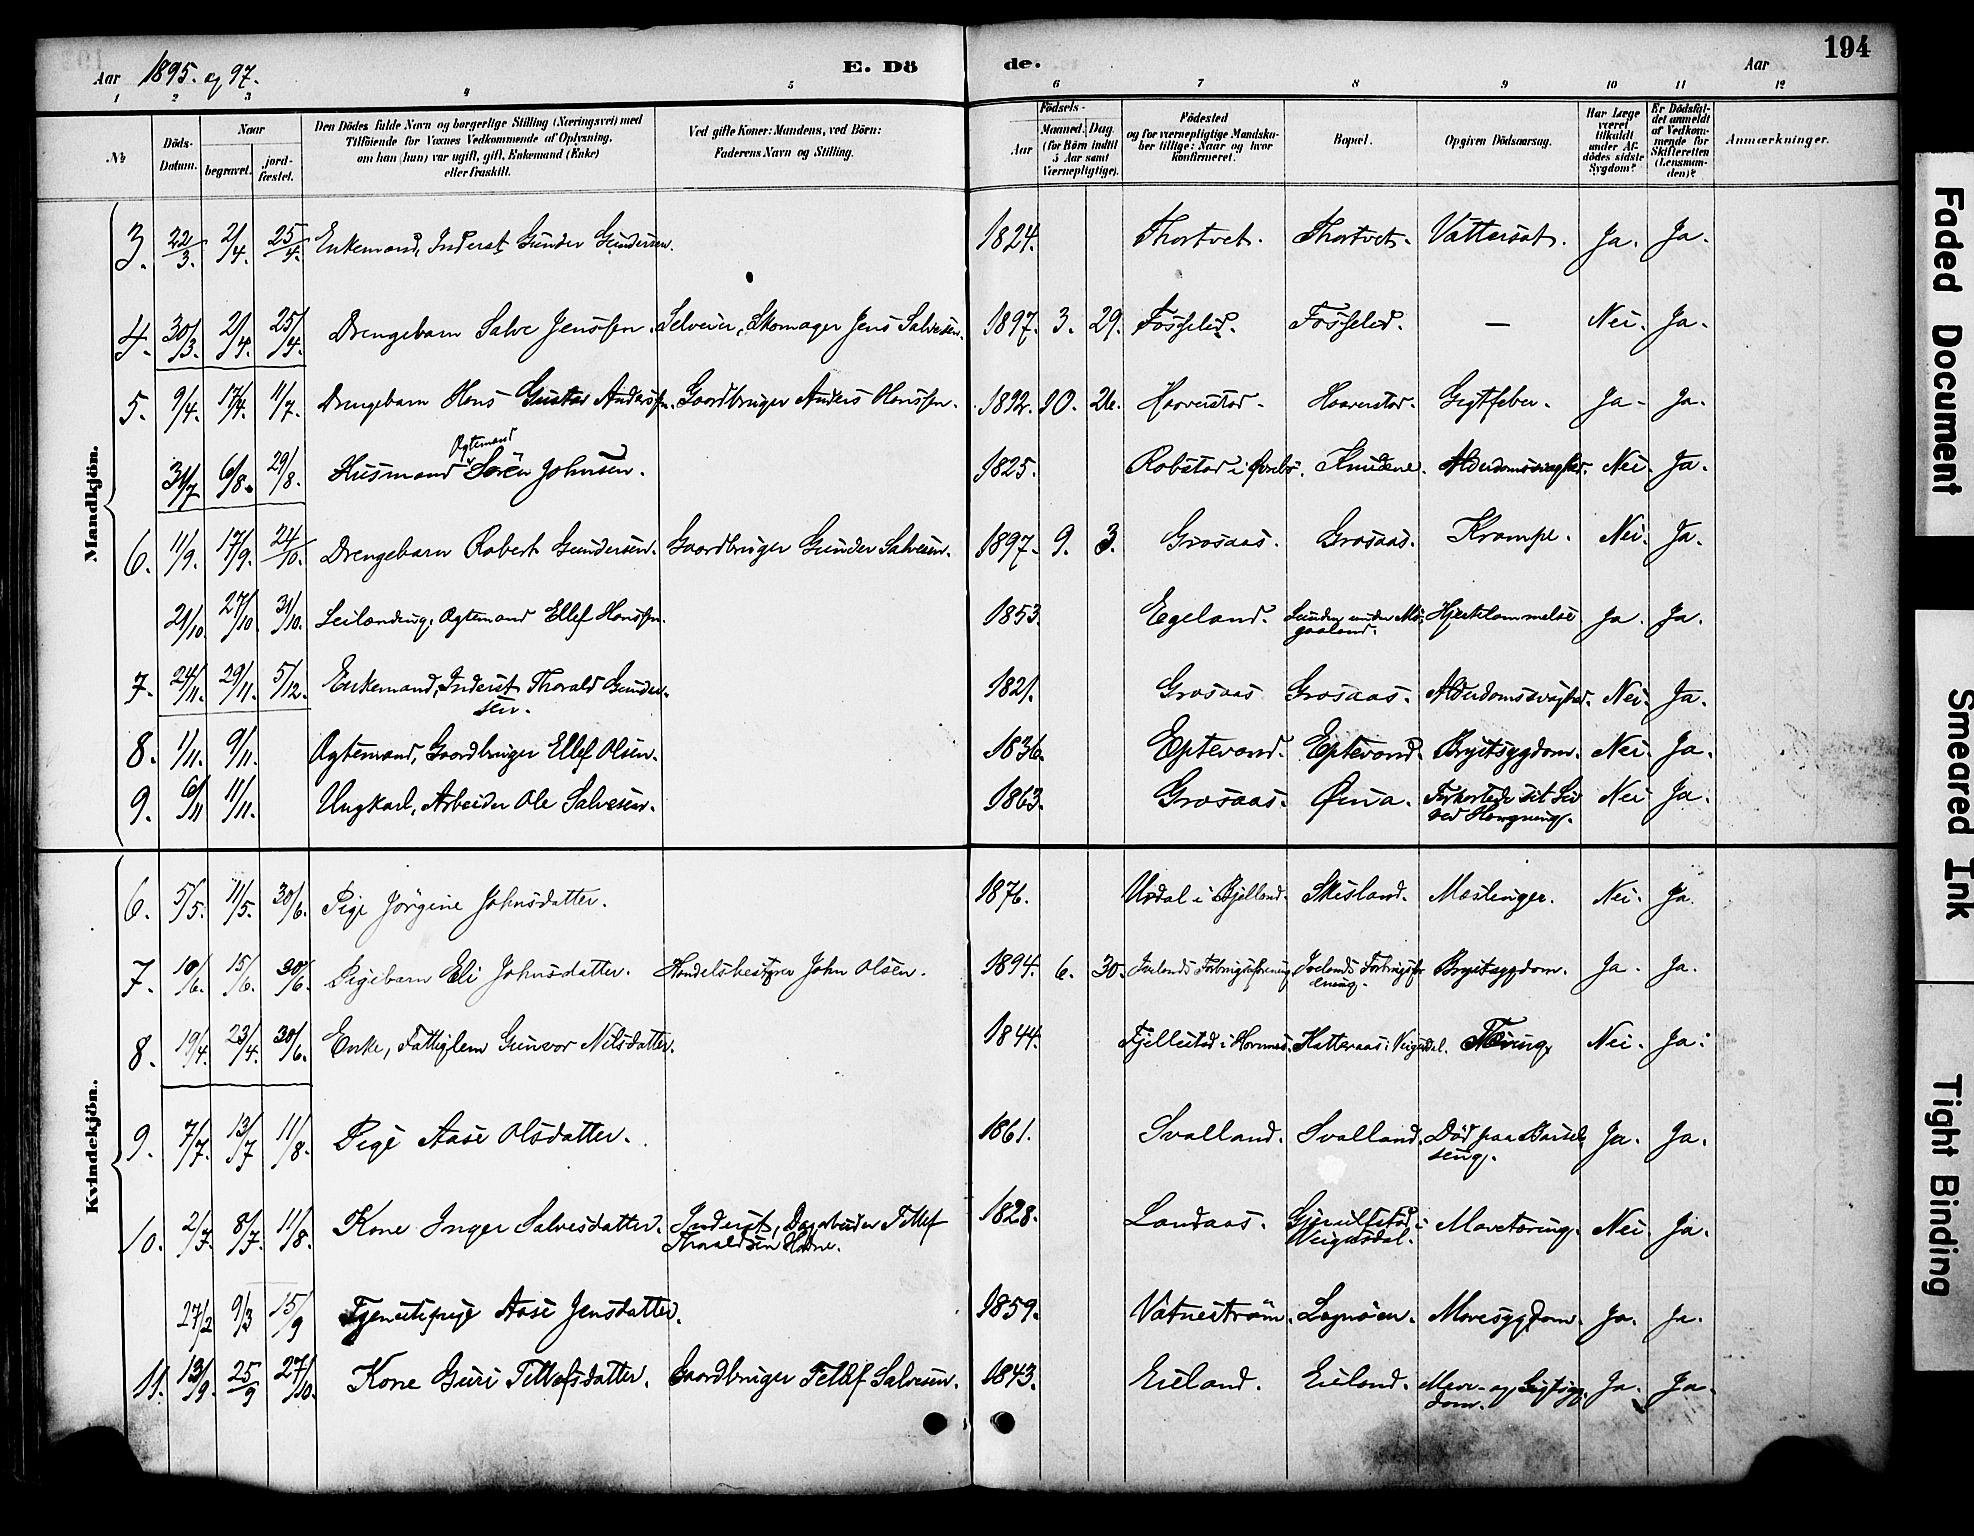 Aar 1895. og 97.
E. Dö
de.
Aar
194
1 2 3 4 5 6 7 8 9 10 11 12
№
Döds-Datum.
Naar
begravet.
jord-fæstet.
Den Dödes fulde Navn og borgerlige Stilling (Næringsvei) med
Tilföiende for Voxnes Vedkommende af Oplysning,
om han (hun) var ugift, gift, Enkemand (Enke)
eller fraskilt.
Ved gifte Koner: Mandens, ved Börn:
Faderens Navn og Stilling.
Födsels-
Aar
Maaned. Dag
(for Börn indtil
5 Aar samt
Værnepligtige).
Födested
og for værnepligtige Mandska-
ber tillige: Naar og hvor
konfirmeret.
Bopæl.
Opgiven Dödsaarsag.
Har Læge
været
tilkaldt
under Af-
dödes sidste
Sygdom?
Er Dödsfal-
det anmeldt
af Vedkom-
mende for
Skifteretten
(Lensman-
den)?
Anmærkninger.
Mandkjön.
3. 22/3. 2/4. 25/4. Enkemand, Inderst Gunder Gundersen. 1824. Thortvet. Thortvet. Vattersot. Ja. Ja.
4. 30/3. 2/4. 25/4. Drengebarn Salve Jenssen. Selveier, Skomager Jens Salvesen. 1897. 3. 29. Fosseled. Fosseled. — Nei. Ja.
5. 9/4. 17/4. 11/7. Drengebarn Hans Gustav Anderssen. Gaardbruger Anders Hanssen. 1892. 10. 26. Haaverstad. Haaverstad. Gigtfeber. Ja. Ja.
31/7 6/8. 29/8. Husmand Ægtemand Sören Johnsen. 1825. Robstad i Øvrebö. Knudene. Alderdomssvaghed. Nei. Ja.
6. 11/9. 17/9. 24/10. Drengebarn Robert Gundersen. Gaardbruger Gunder Salvesen. 1897. 9. 3. Grosaas. Grosaas. Krampe. Nei. Ja.
21/10 27/10. 31/10. Leilænding, Ægtemand Ellef Hanssen. 1853. Egeland. under Mö-
gaaland. Hjertelammelse Ja. Ja.
7. 24/11. 29/11. 5/12. Enkemand, Inderst Thorald Gunder-
sen. 1821. Grosaas Grosaas. Alderdomssvaghed. Nei. Ja.
8. 1/11. 9/11. Ægtemand, Gaardbruger Ellef Olsen. 1836. Eptevand. Eptevand. Brystsygdom. Nei. Ja.
9. 6/11 11/11. Ungkarl, Arbeider Ole Salvesen. 1863. Grosaas. Øina. Forkortede sit Liv
ved Hængning. Nei Ja.
Kvindekjön.
6. 5/5. 11/5. 30/6. Pige Jörgine Johnsdatter. 1876. Usdal i Bjelland. Skisland. Mæslinger. Nei. Ja.
7. 10/6. 15/6. 30/6. Pigebarn Eli Johnsdatter. Handelsbestyrer John Olsen. 1894. 6. 30. Ivelands Forbrugsforening Ivelands Forbrugsfor-
ening. Brystsygdom. Ja. Ja.
8. 19/4. 23/4. 30/6. Enke, Fattiglem Gunvor Nilsdatter. 1844. Fjellestad i Hornnes. Hatteraas i Veigusdal. Tæring. Nei. Ja.
9. 7/7. 13/7 11/8. Pige Aase Olsdatter. 1861. Svalland. Svalland. Död paa Barsel-
seng. Ja. Ja.
10. 2/7. 8/7. 11/8. Kone Inger Salvesdatter. Inderst, Dagarbeider Tellef
Thoraldsen 1828. Landaas. Gjeruldstad i
Veigusdal. Mavetæring. Nei Ja.
27/2 9/3 15/9 Tjenestepige Aase Jensdatter. 1859. Vatneström. Lognöen. Mavesygdom. Ja. Ja.
11. 13/9. 25/9 27/10. Kone Guri Tellefsdatter. Gaardbruger Tellef Salvesen. 1843. Eieland. Eieland. Mave- og Gigtsyg-
dom. Ja. Ja.
Faded Document
Smeared Ink
Tight Binding